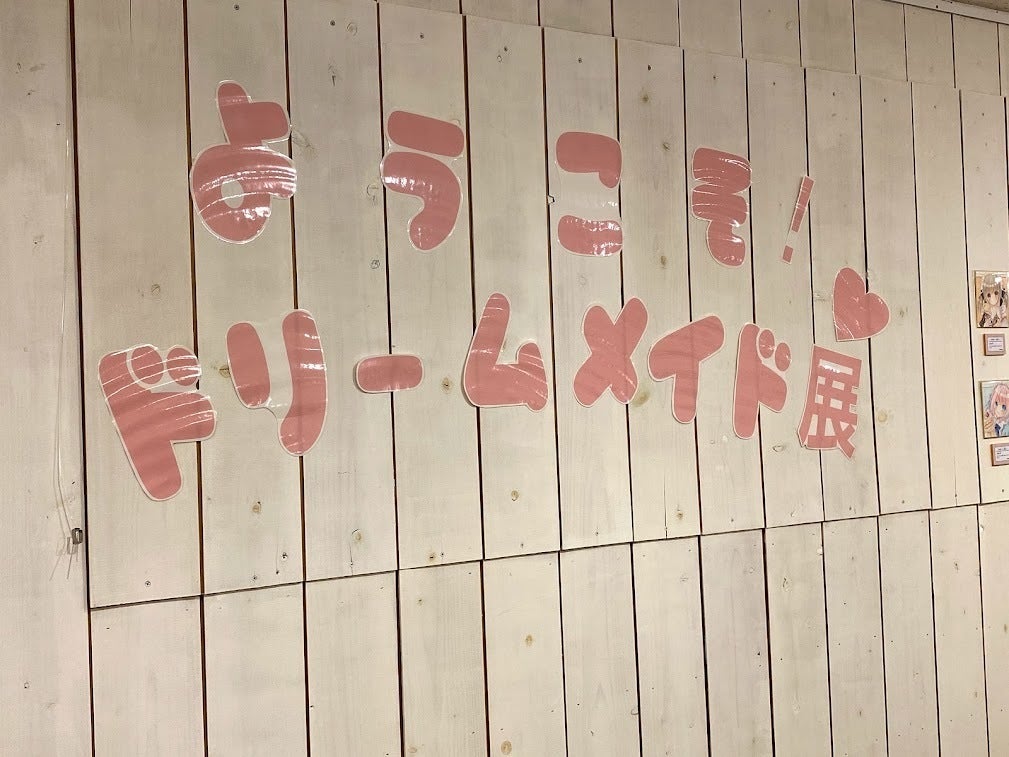 ようこそ!
ドリームメイド展